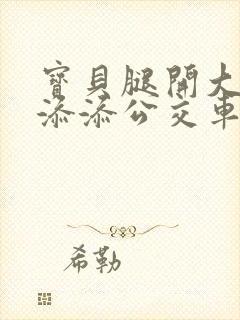 寶貝腿開大
添添公交車
希勒